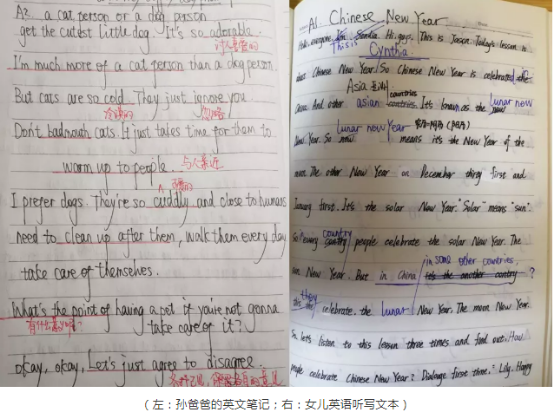 A2. a cat person or a dog person
get the cutest little dog. It's so adorable.
讨人喜爱的
I'm much more of a cat person than a dog person
But cats are so cold. They just ignore you
冷漠的 忽略
Don't badmouth cats. It just takes time for them to
warm up to people. 与人亲近
I prefer dogs. They're so cuddly and close to humans
need to clean up after them, walk them every day
take care of themselves.
What's the point of having a pet if you're not gonna
take care of it?
okay, okay, Let's just agree to disagree.
A1. Chinese New Year
everyone. Hi, guys. This is Jason. Today's lesson is
This is
Cynthia
about Chinese New Year. So Chinese New Year is celebrated
Asia
China. And other asian countries. It's known as the lunar new
Lunar new Year
New Year. So means it's the New Year of the
moon. The other New Year on December thirty first and
January first. It's the solar New Year. "Solar" means "sun".
country
So every people celebrate the solar New Year. The
in some other countries.
New Year. But in China its the another contry ?
they
celebrate the lunar New Year. The moon New Year.
So let's listen to this lesson three times and find out How
people celebrate Chinese New Year? Dialogue first three. Lily. Happy
（左：孙爸爸的英文笔记；右：女儿英语听写文本）